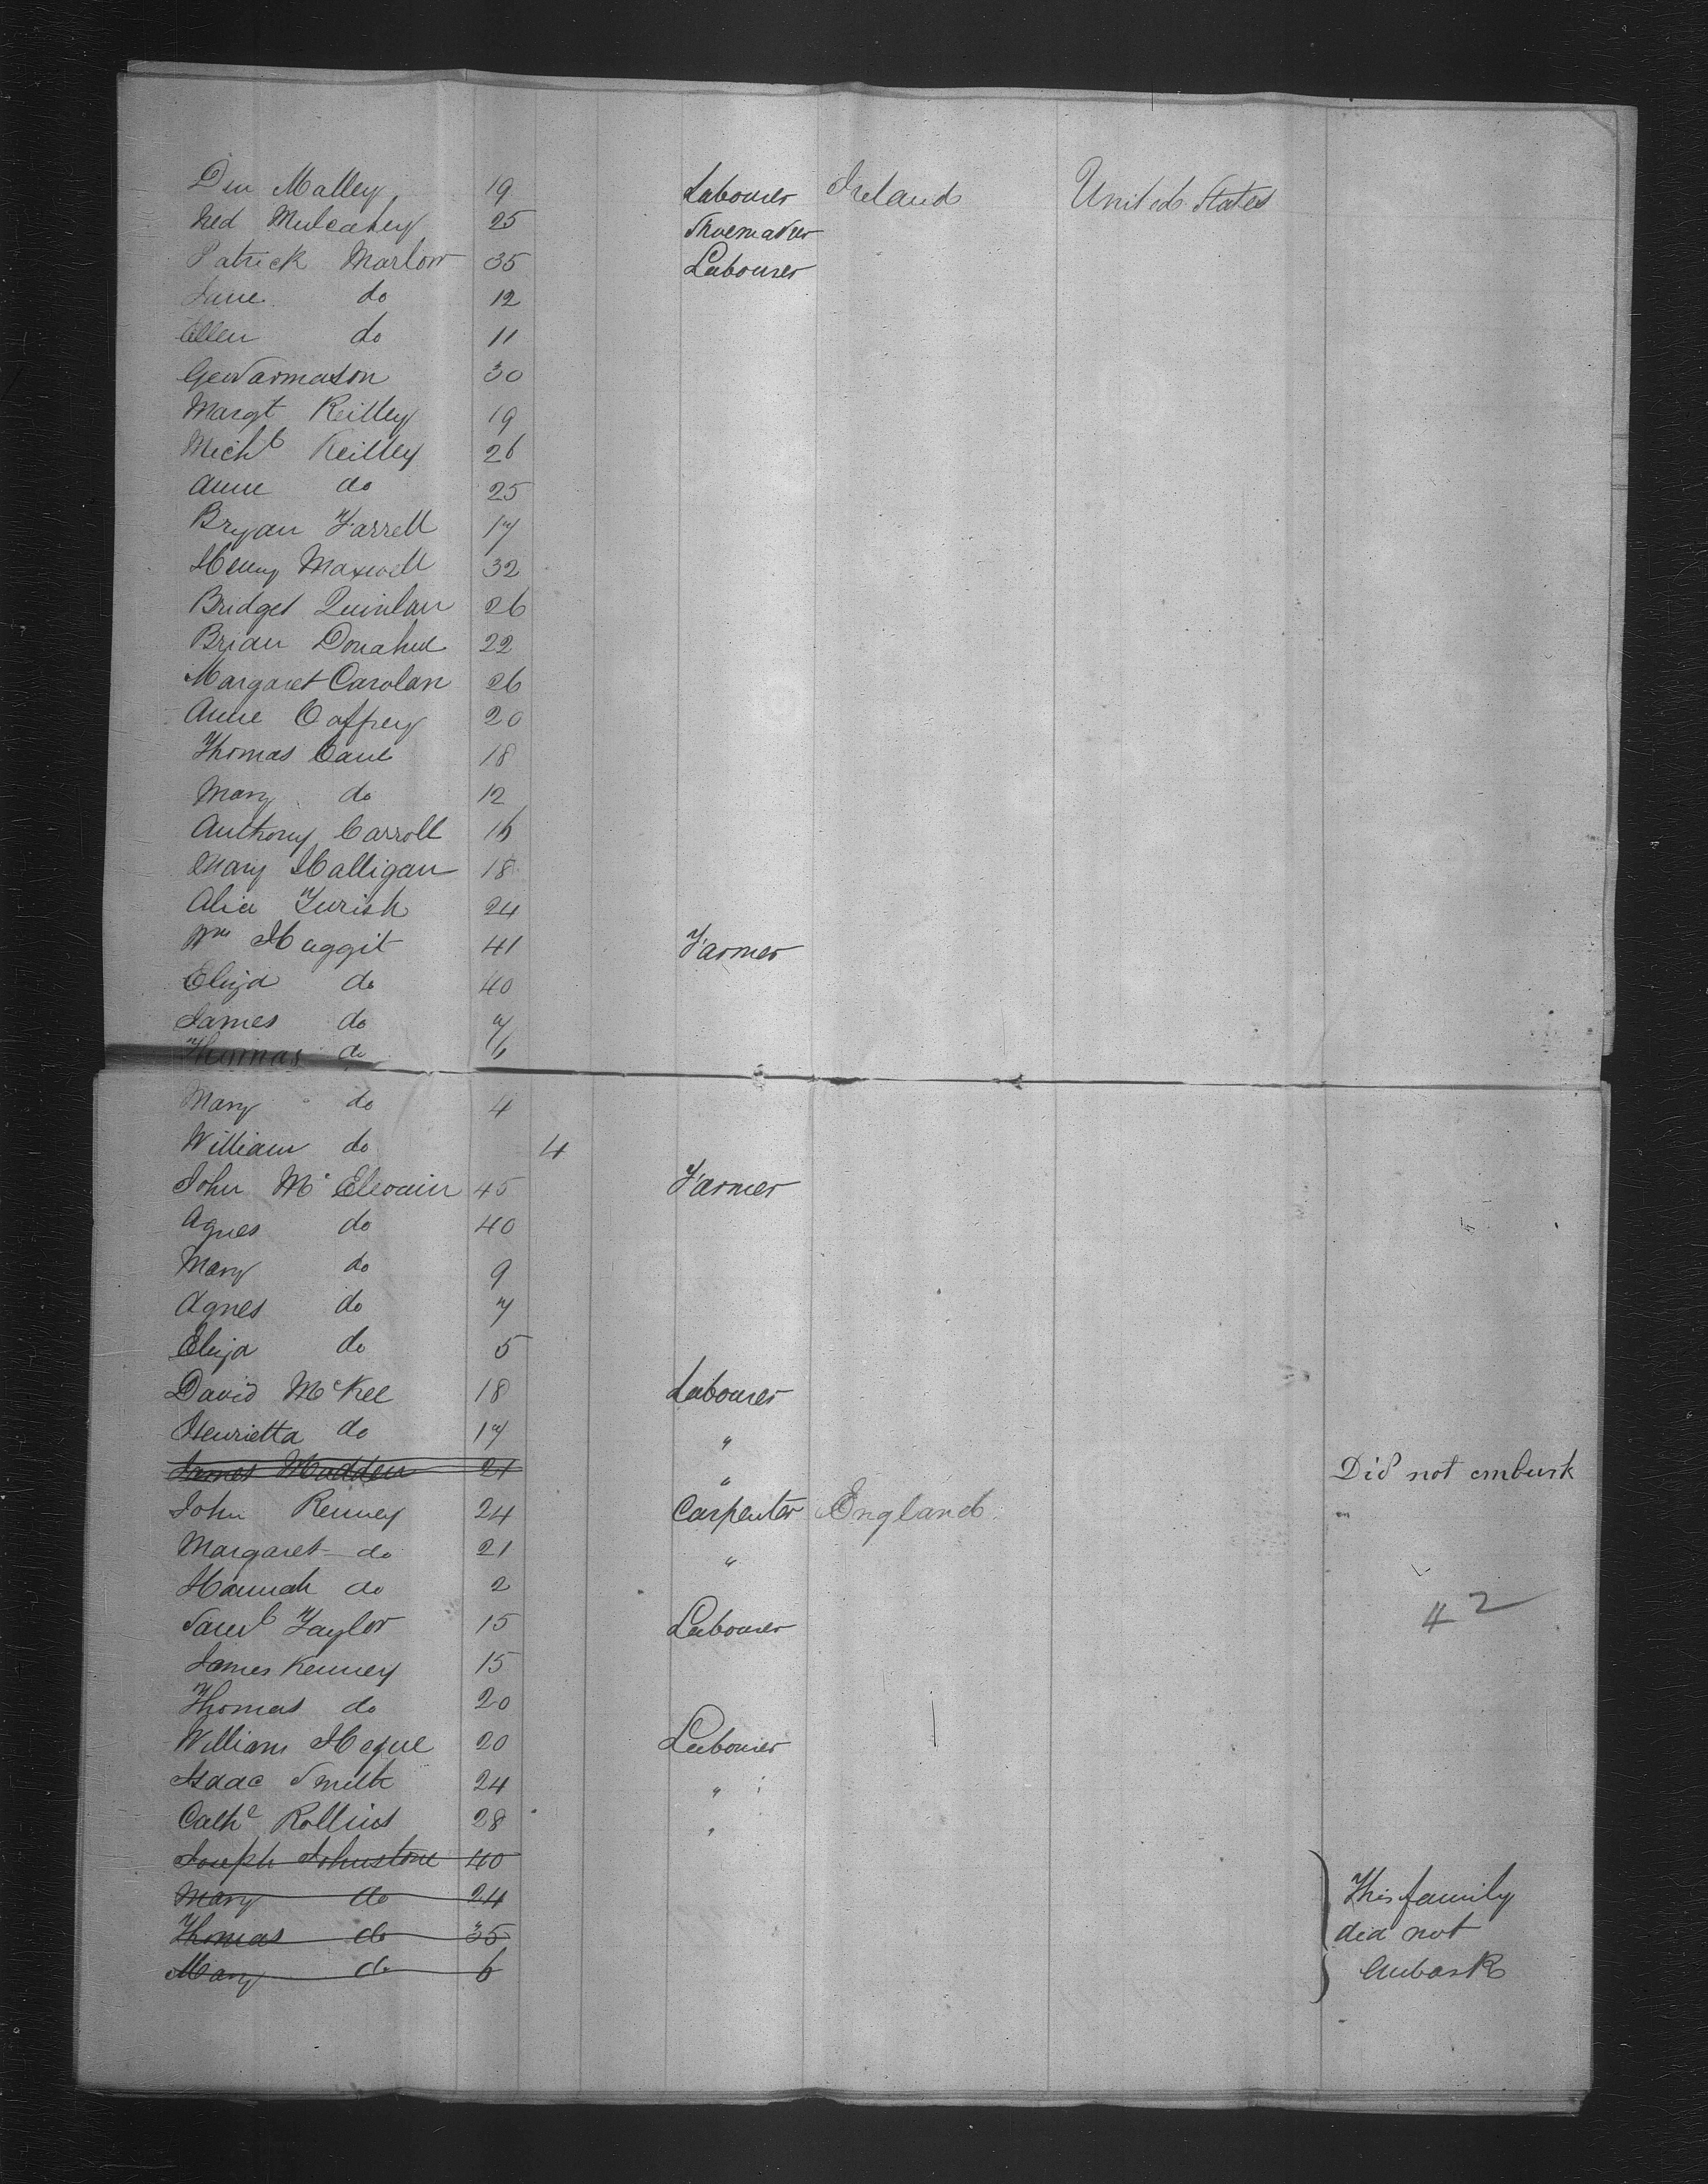 Den Malley 19 Labourer Ireland United States
Ned Mulcahey 25 Shoemaker
Patrick Marlow 35 Labourer
Jane do 12
Ellen do 11
30
Margt Reilley 19
Michl Reilley 26
Anne do 25
Bryan Farrell 17
Henry Maxwell 32
Bridget Quinlan 26
Brian Donahue 22
Margaret Carolan 26
Anne Caffrey 20
Thomas Cane 18
Mary do 12
Anthony Carroll 16
Mary Halligan 18
Alice 24
Wm Haggit 41 Farmer
Eliza do 40
James do 7
Thomas do 6
Mary do 4
William do 4
John Mc Elwain 45 Farmer
Agnes do 40
Mary do 9
Agnes do 7
Eliza do 5
David McKee 18 Labourer
Henrietta do 17 "
James Madden 21 " Did not embark
John Kenney 24 Carpenter England "
Margaret do 21 "
Hannah do 2
42
Saml Taylor 15 Labourer
James Kenney 15
Thomas do 20
William 20 Labourer
Isaac Smith 24 "
Cathe Rollins 28 "
Joseph Johnstone 40
Mary do 24 This family
Thomas do 35 did not
Mary do 6 Embark